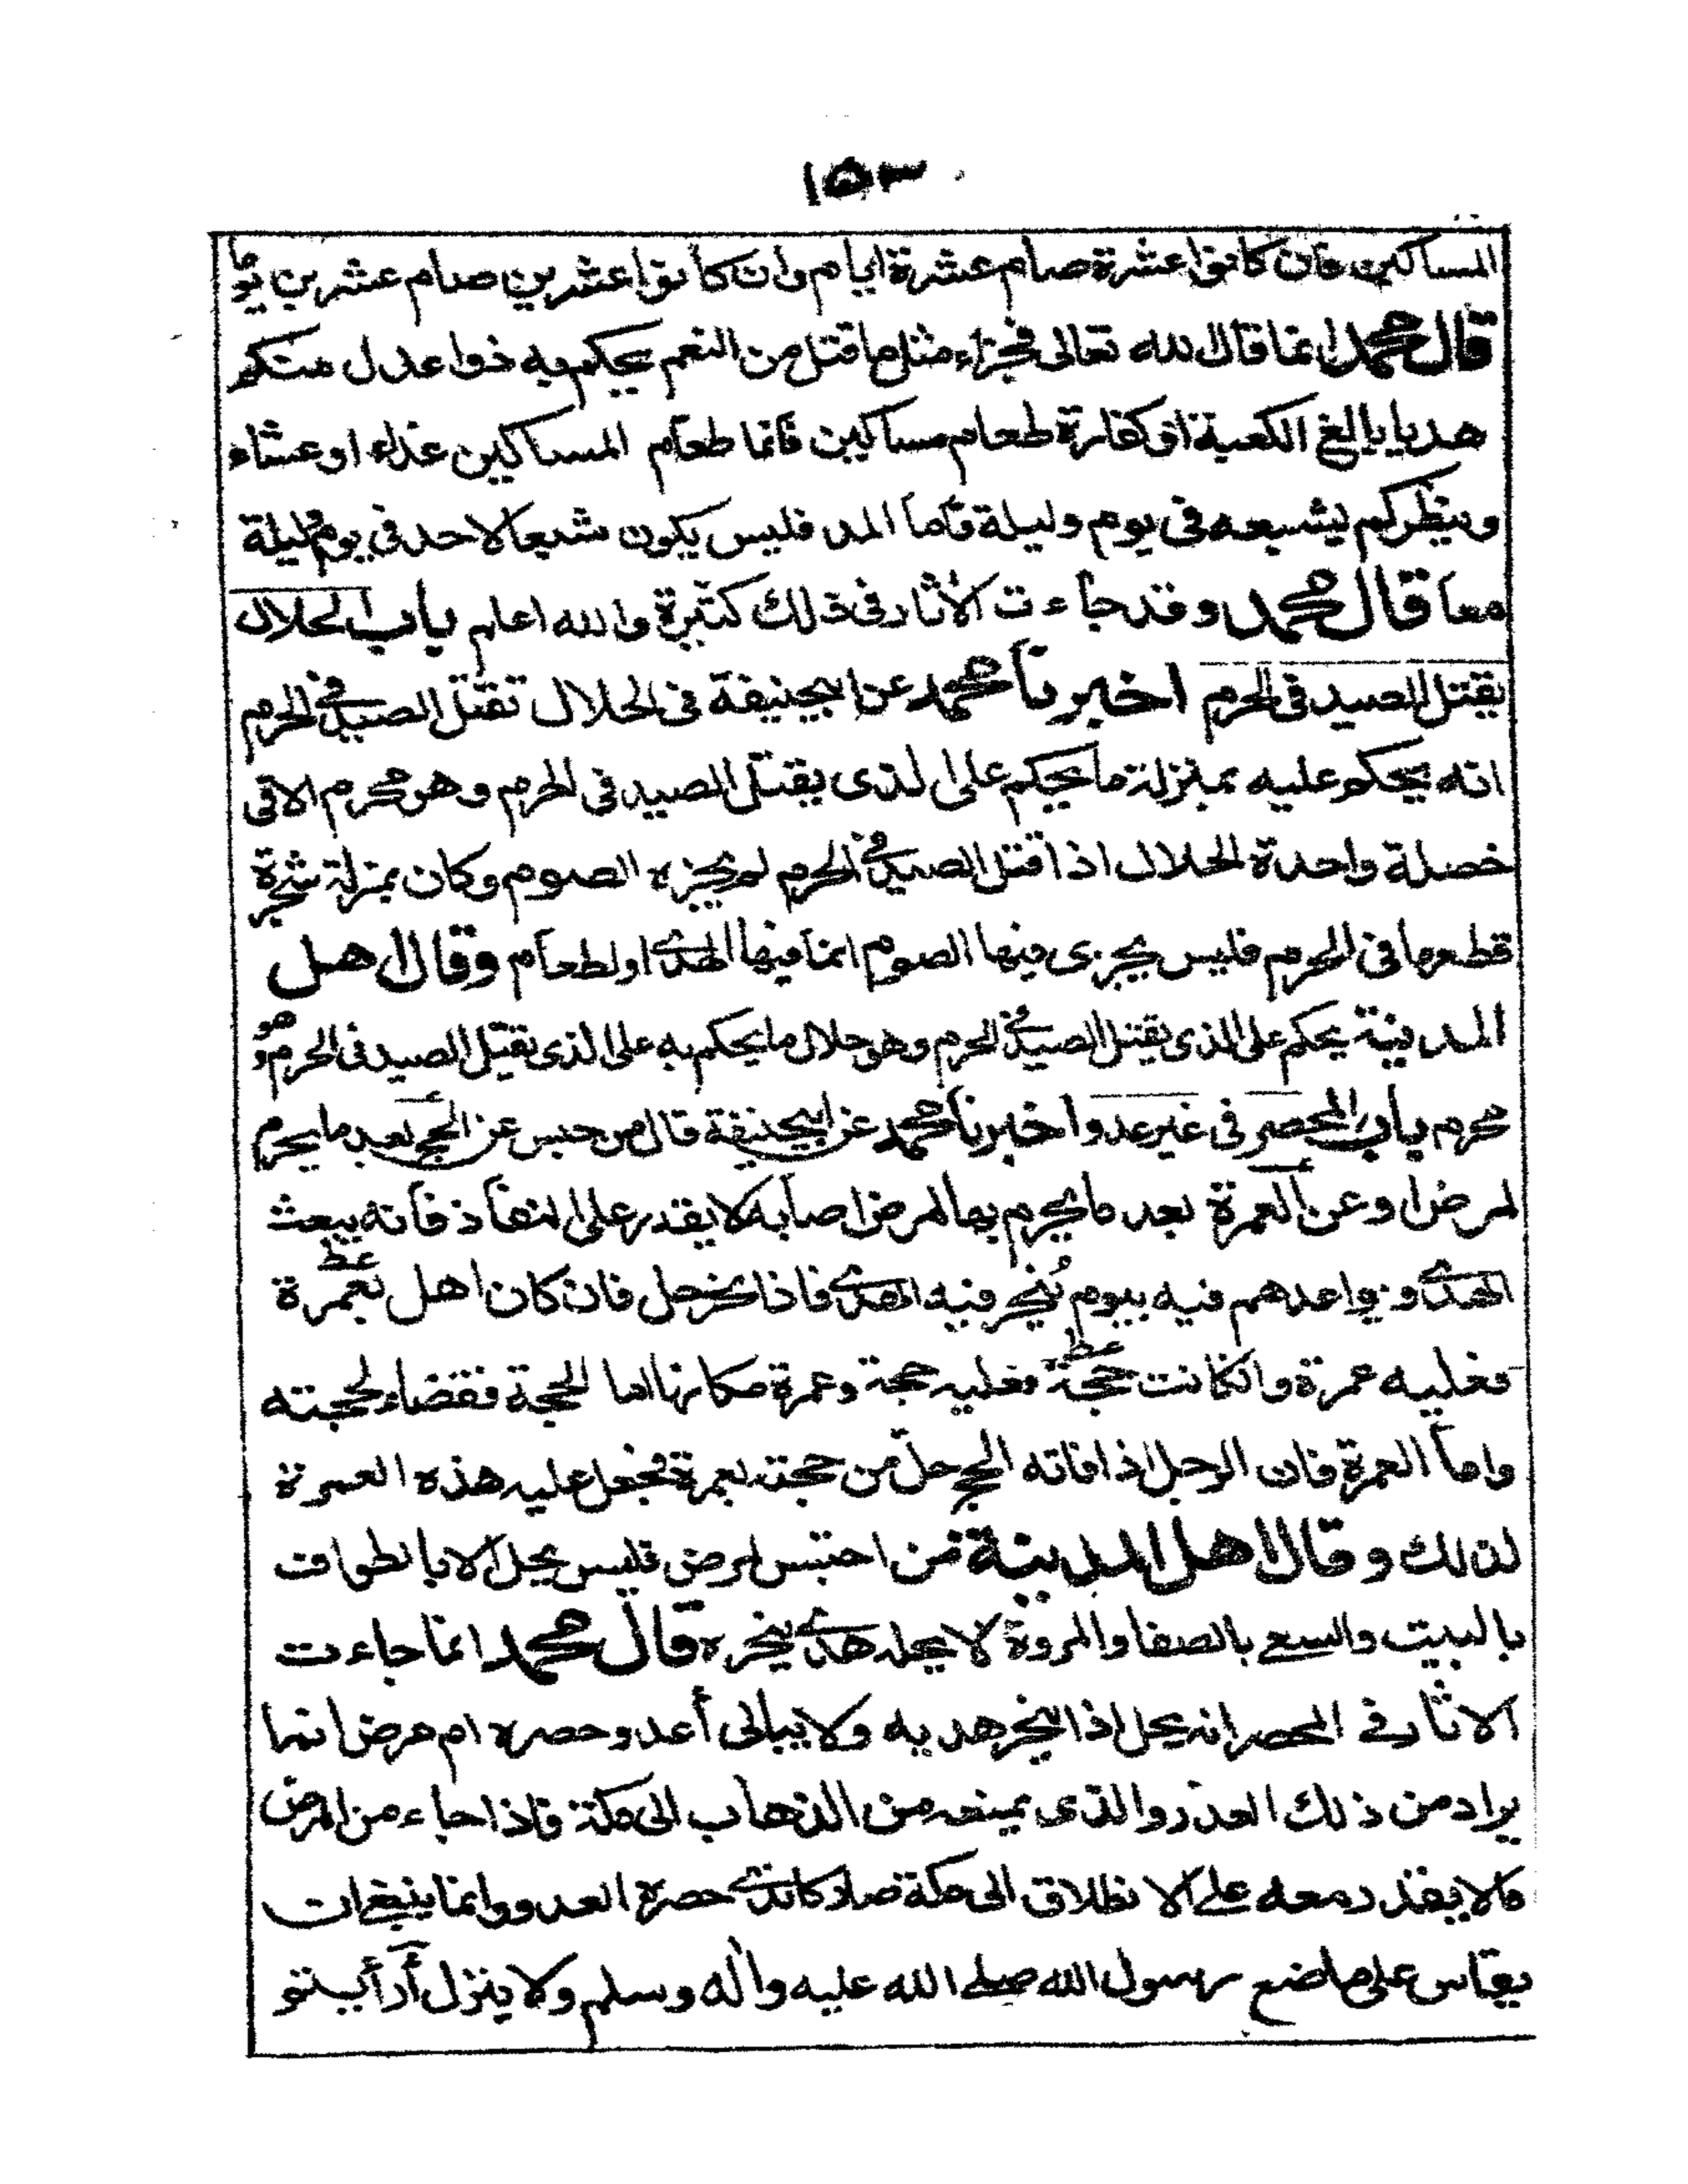 ١٥٣
المساكين فان كانوا عشرة صام عشرة ايام وان كانوا عشرين صام عشرين يوما
قال محمد انما قال الله تعالى فجزاء مثل ما قتل من النعم يحكم به ذوا عدل منكم
هديا بالغ الكعبة او كفارة طعام مساكين فانما طعام المساكين غداء او عشاء
وينظركم يشبعه فى يوم وليلة فاما المد فليس يكون شبعا لاحد فى يوم وليلة
معا قال محمد وقد جاءت الآثار فى ذلك كثيرة والله اعلم باب الحلال
يقتل الصيد فى الحرم اخبرنا محمد عن ابيحنيفة فى الحلال تقتل الصيد فى الحرم
انه يحكم عليه بمنزلة ما يحكم على الذى يقتل الصيد فى الحرم وهو محرم الا فى
خصلة واحدة الحلال اذا قتل الصيد فى الحرم لم يجزه الصوم وكان بمنزلة شجرة
قطعها فى الحرم فليس يجزى فيها الصوم انما فيها الهدى او لطعام وقال اهل
المدينة يحكم على الذى يقتل الصيد فى الحرم وهو حلال ما يحكم به على الذى يقتل الصيد فى الحرم وهو
محرم باب المحصر فى غير عدو اخبرنا محمد عن ابيحنيفة قال من حبس عن الحج بعد ما يحرم
لمرض او عن العمرة بعد ما يحرم بها لمرض اصابه لا يقدر على النفاذ فانه يبعث
الهدى و يواعدهم فيه بيوم يُنحر فيه الهدى فاذا نحر حل فان كان اهل بعمرة
فعليه عمرة وانكانت حجة فعليه حجة وعمرة مكانها اما الحجة فقضاء لحجته
واما العمرة فان الرجل اذا فاته الحج حلّ من حجته بعمرة فجعل عليه هذه العمرة
لذلك وقال اهل المدينة من احتبس لمرض فليس يحل الا بالطواف
بالبيت والسعے بالصفا والمروة لا يحله هدى ينحره قال محمد انما جاءت
الاثار فے المحصر انه يحل اذا انحر هديه ولا يبالى أعدو حصره ام مرض انما
يراد من ذلك العذر والذى يمنعه من الذهاب الى مكة فاذا جاء من المرض
مالا يقدر معه علے الانطلاق الى مكة صار كالذى حصره العدو وانما ينبغے ان
يقاس على ما صنع رسول الله صلے الله عليه واله وسلم ولا ينزل أرأيتم